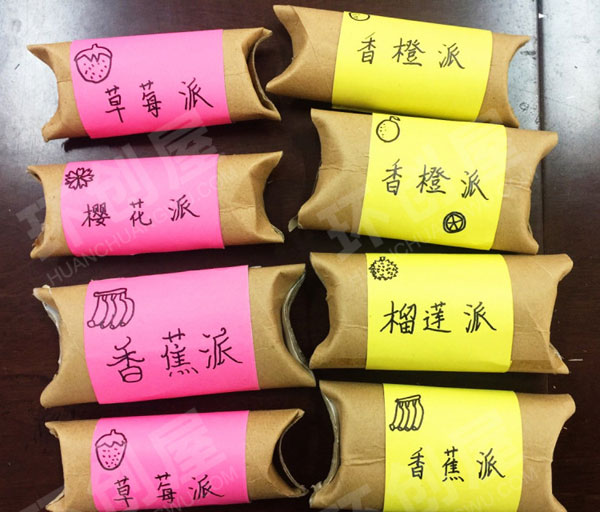 草莓派
香橙派
樱花派
香橙派
香蕉派
榴莲派
草莓派
香蕉派